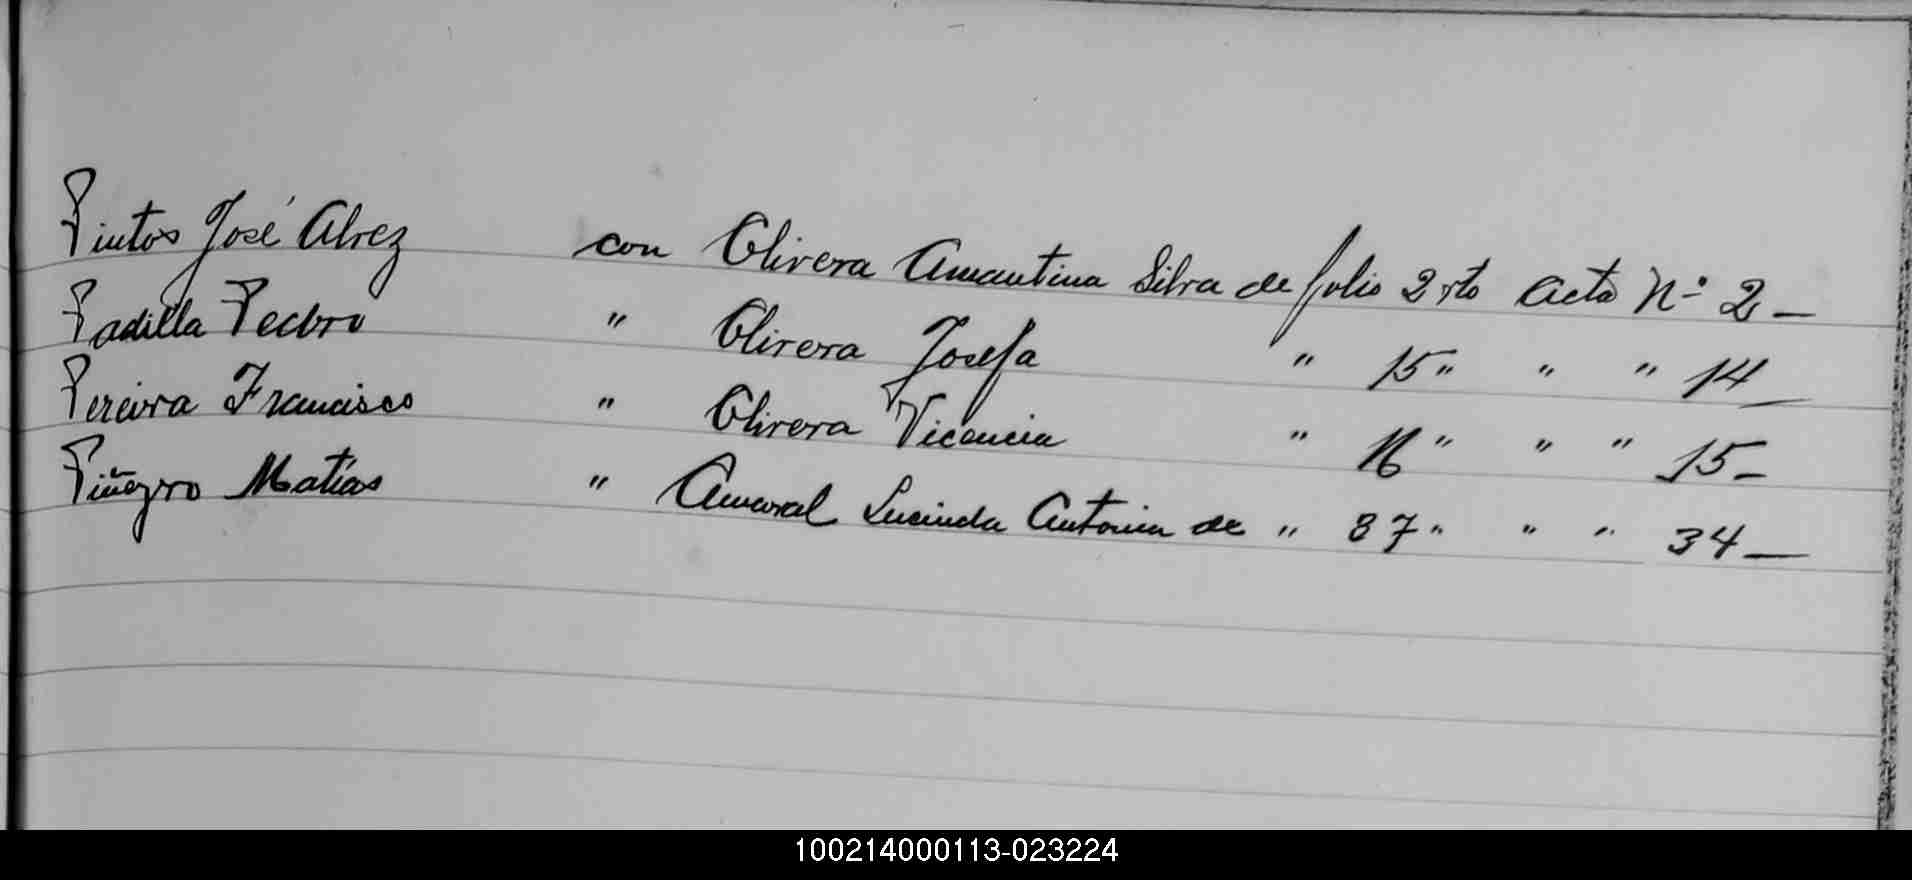 Pintos José Alvez con Olivera Amantina Silva de folio 2 vto Acta Nº 2 —
Padilla Pedro " Olivera Josefa " 15 " " " 14 —
Pereira Francisco " Olivera Vicencia " 16 " " " 15 —
Piñeyro Matías " Amaral Lucinda Antonia de " 37 " " " 34 —
100214000113-023224